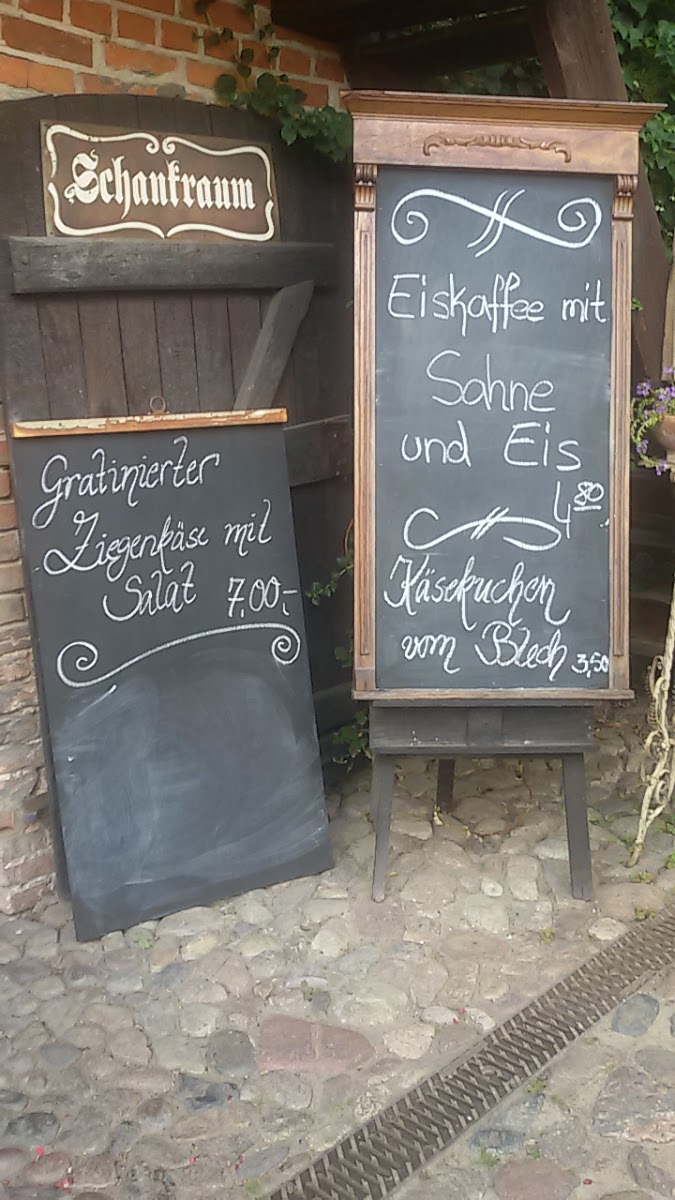 Schankraum
Gratinierter
Ziegenkäse mit
Salat 7,00.-
Eiskaffee mit
Sahne
und Eis
4 80
Käsekuchen
vom Blech 3,50